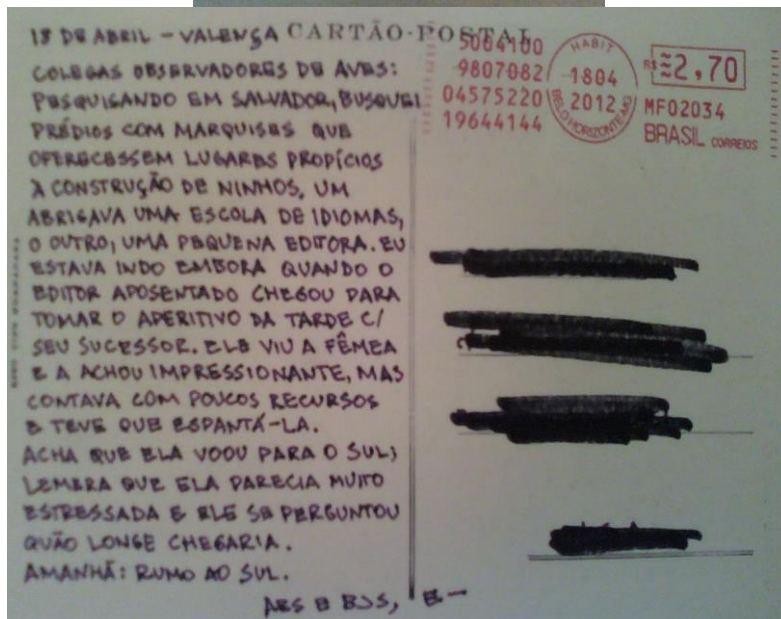 18 DE ABRIL - VALENÇA
CARTÃO-POSTAL
COLEGAS OBSERVADORES DE AVES:
PESQUISANDO EM SALVADOR, BUSQUEI
PRÉDIOS COM MARQUISES QUE
OFERECESSEM LUGARES PROPÍCIOS
À CONSTRUÇÃO DE NINHOS, UM
ABRIGAVA UMA ESCOLA DE IDIOMAS,
O OUTRO, UMA PEQUENA EDITORA. EU
ESTAVA INDO EMBORA QUANDO O
EDITOR APOSENTADO CHEGOU PARA
TOMAR O APERITIVO DA TARDE C/
SEU SUCESSOR. ELE VIU A FÊMEA
E A ACHOU IMPRESSIONANTE, MAS
CONTAVA COM POUCOS RECURSOS
E TEVE QUE ESPANTÁ-LA.
ACHA QUE ELA VOOU PARA O SUL;
LEMBRA QUE ELA PARECIA MUITO
ESTRESSADA E ELE SE PERGUNTOU
QUÃO LONGE CHEGARIA.
AMANHÃ: RUMO AO SUL.
ABS E BJS, E-
5004100
9807082
04575220
19644144
HABIT
1804
2012
BELO HORIZONTE/MG
R$ 2,70
MF02034
BRASIL CORREIOS